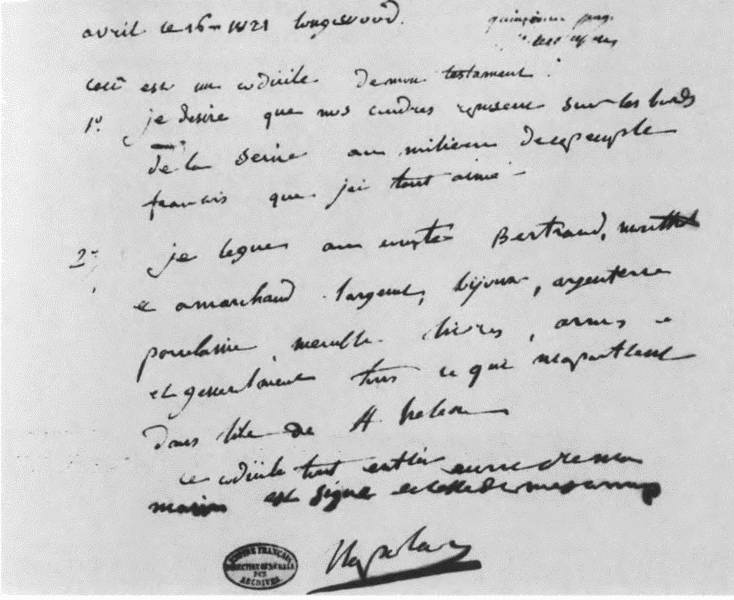 avril le 16 1821 longwood.
ceci est un codicile de mon testament.
1° je desire que mes cendres reposent sur les bords
de la Seine au milieu de ce peuple
francais que j'ai tant aimé
2° je legue au comte Bertrand, montholon
et a marchand l'argent, bijoux, argenterie
porcelaine, meuble livres, armes
et generalement tous ce qui m'apartient
dans l'ile de St helene
ce codicile tout entier ecrit de ma
main est signé et scellé de mes armes
Napoleon
EMPIRE FRANÇAIS
DIRECTION GENERALE
DES
ARCHIVES